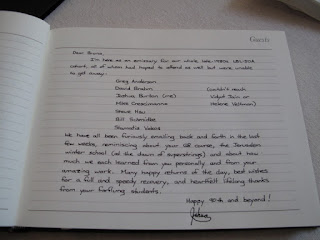 Guests
Dear Bruria,
I'm here as an emissary for our whole late-1980s
cohort, all of whom had hoped to attend as well but were unable
to get away:
Greg Anderson
David Brahm (couldn't reach
Joshua Burton (me) Vidyut Jain or
Mike Crescimanno Helene Veltman)
Steve Hsu
Bill Schmidke
Shamatis Vokos
We have all been furiously emailing back and forth in the last
few weeks, reminiscing about your course, the Jerusalem
winter school (at the dawn of superstrings) and about how
much we each learned from you personally and from your
amazing work. Many happy returns of the day, best wishes
for a full and speedy recovery, and heartfelt lifelong thanks
from your farflung students.
Happy and beyond!